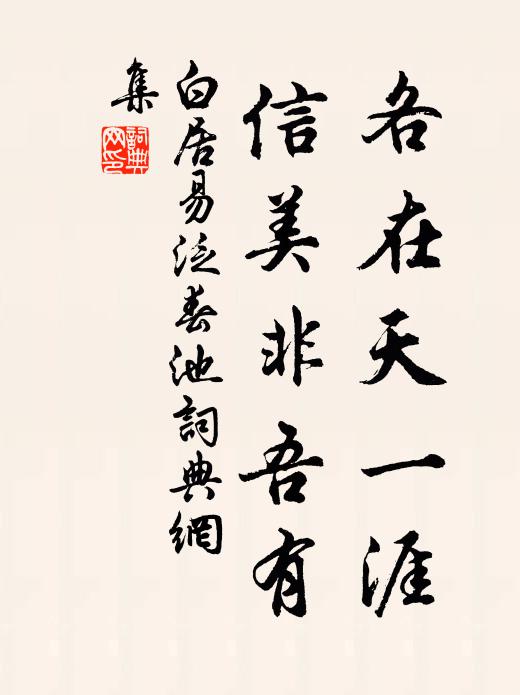 各在天一涯
信美非吾有
白居易泛春池詞典網
集
詞典網印